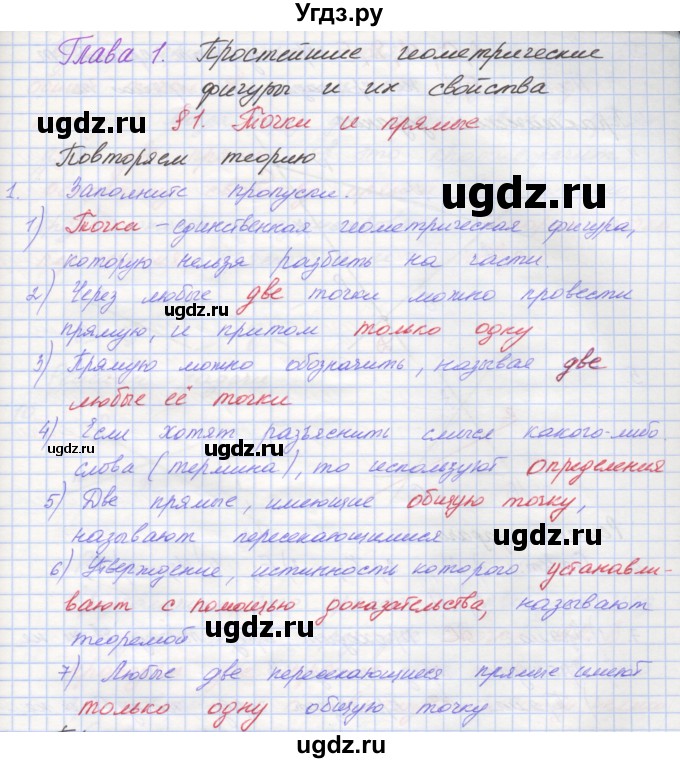 Угдз.ру
Глава 1. Простейшие геометрические
фигуры и их свойства
§1. Точки и прямые
ugdz.ru
Повторяем теорию
ugdz.ru
1. Заполните пропуски.
1) Точка – единственная геометрическая фигура,
которую нельзя разбить на части
2) Через любые две точки можно провести
ugdz.ru
прямую, и притом только одну
3) Прямую можно обозначить, называя две
любые её точки
4) Если хотят разъяснить смысл какого-либо
ugdz.ru
слова (термина), то используют определения
5) Две прямые, имеющие общую точку,
ugdz.ru
называют пересекающимися
ugdz.ru
6) Утверждение, истинность которого устанавли-
вают с помощью доказательства, называют
теоремой
ugdz.ru
7) Любые две пересекающиеся прямые имеют
только одну общую точку
ugdz.ru
ugdz.ru